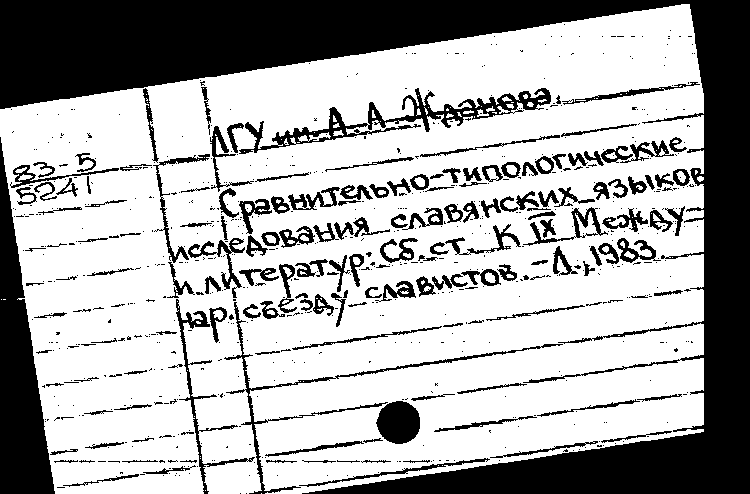 ЛГУ им. А. А. Жданова.
83-5
5241
Сравнительно-типологические
исследования славянских языков
и литератур: Сб. ст. К IX Между-
нар. съезду славистов. - Л., 1983.